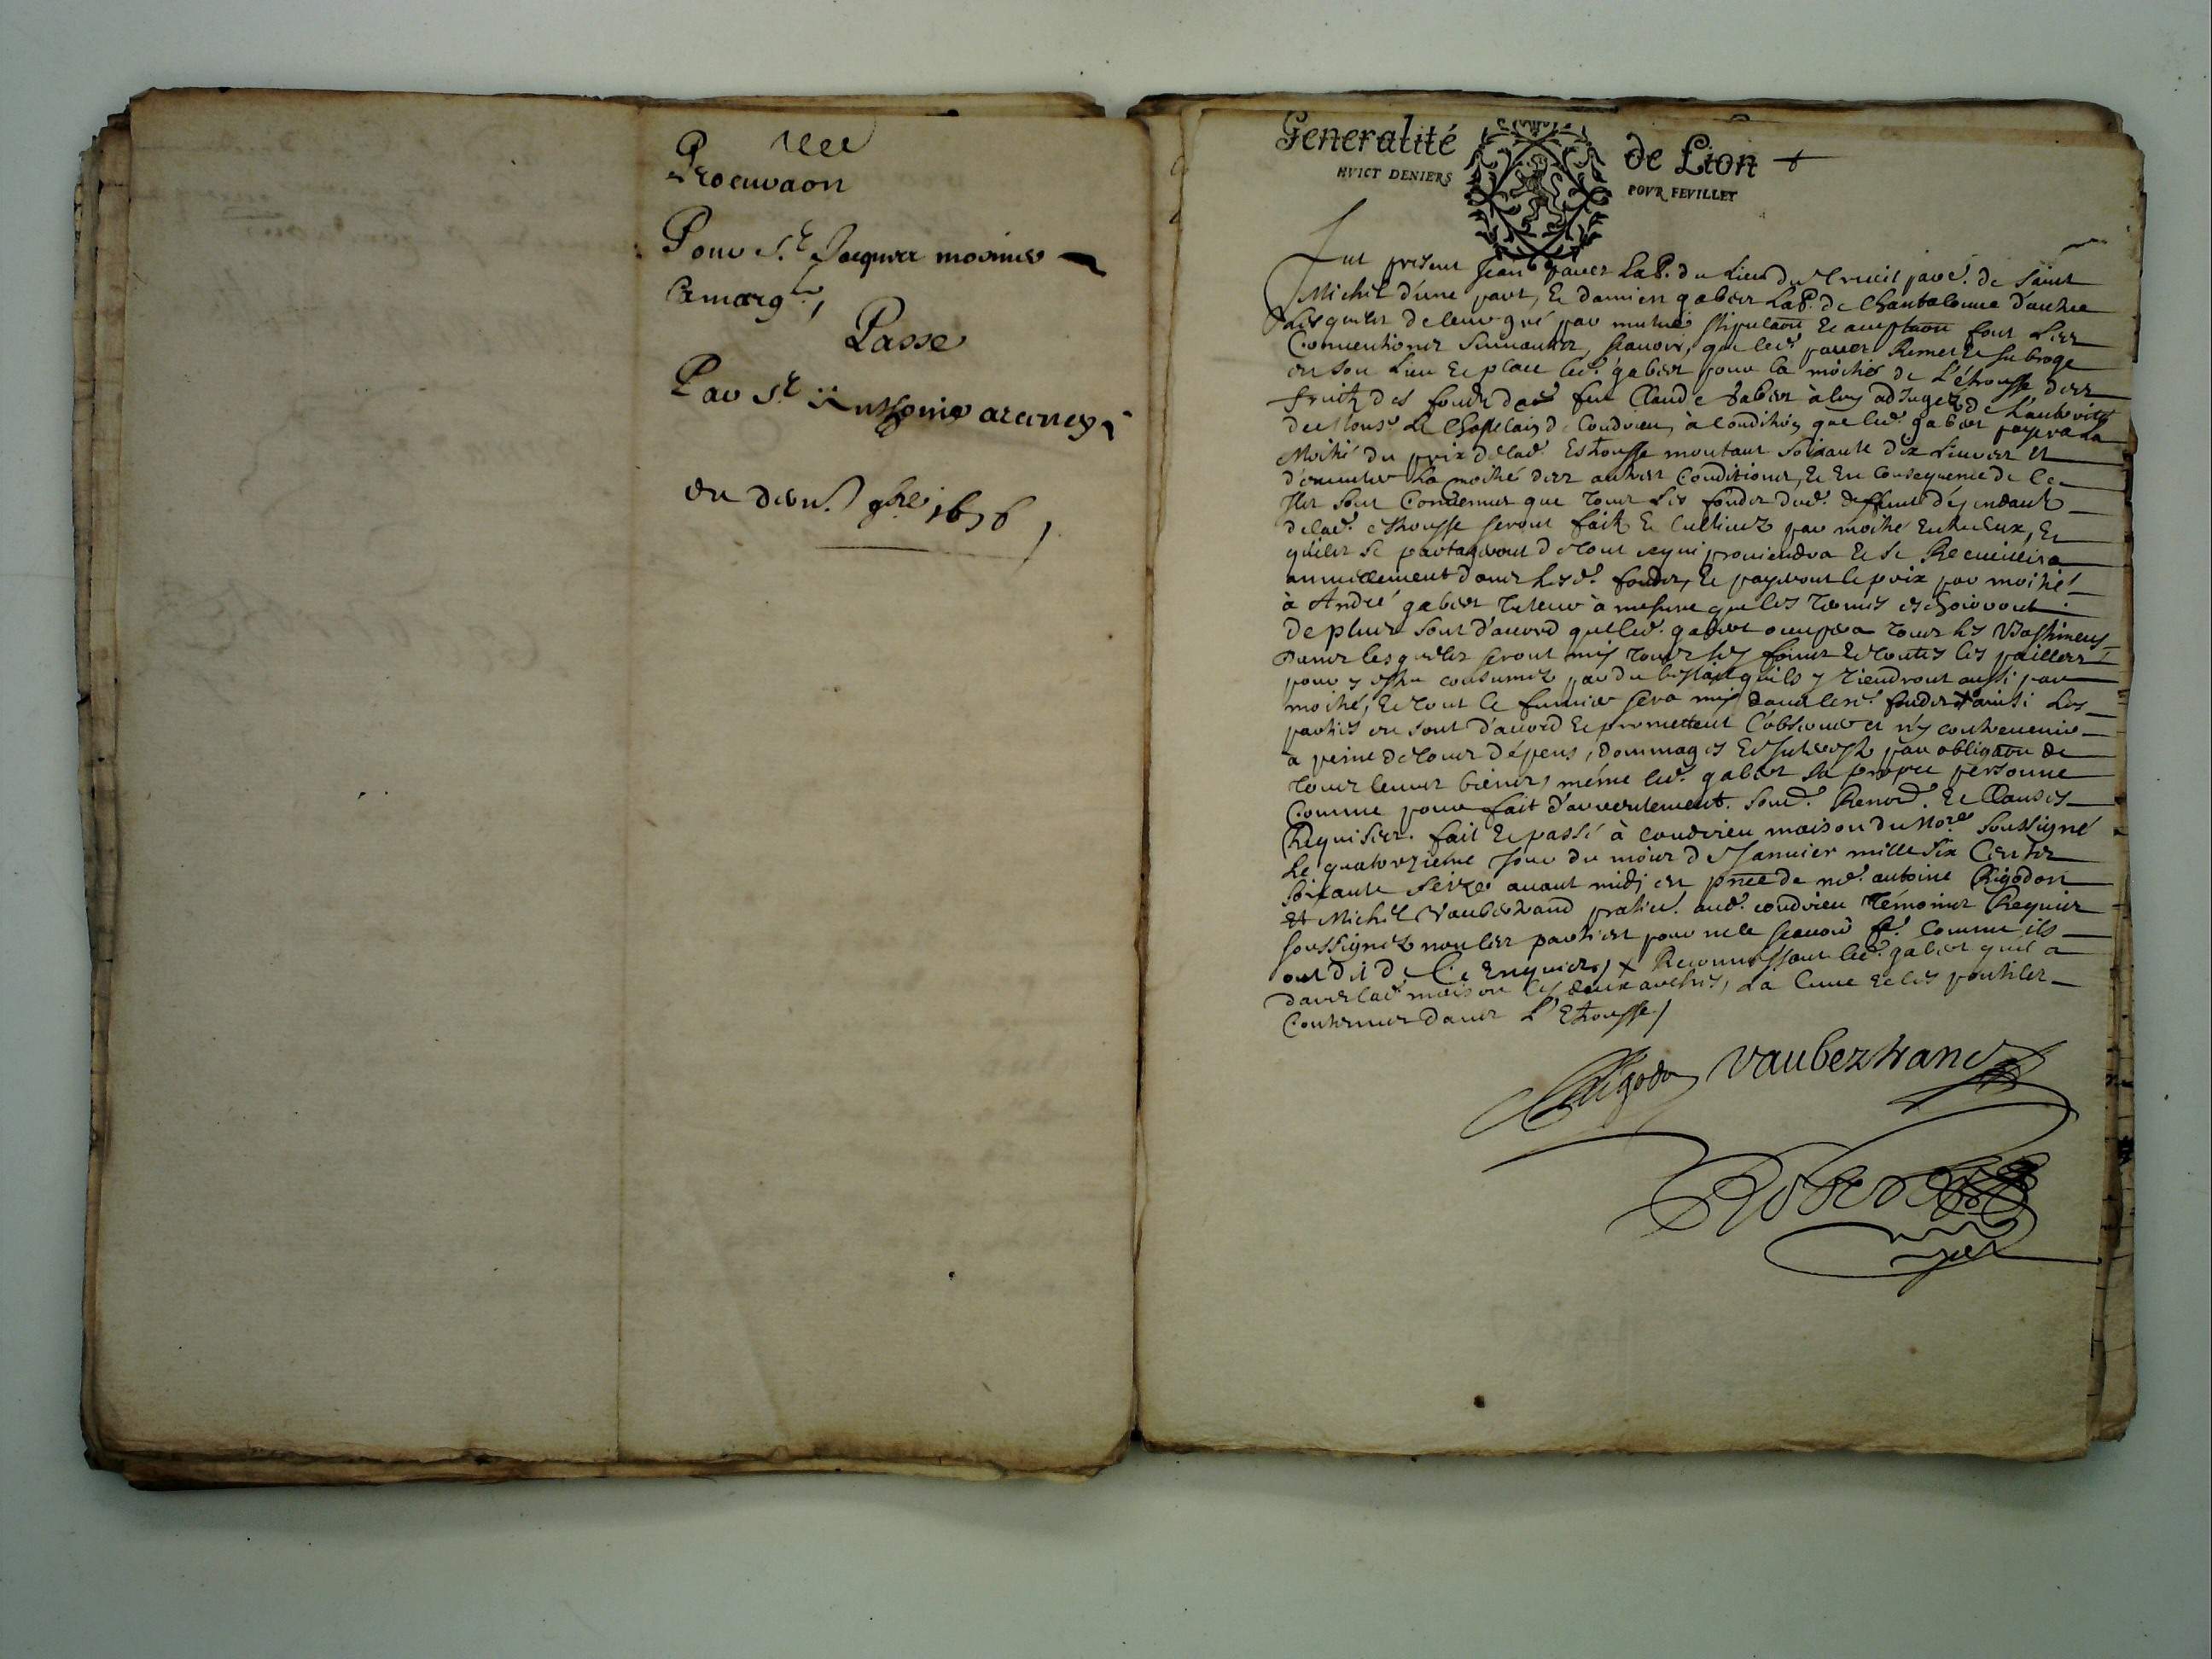 Procuraon
Pour Sr. Jacques
Passe
Par Sr Anthoine
1676
Generalité de Lion
HVICT DENIERS POVR FEVILLET
Fut present Jean payet LaB. du Lieu du parre. de Saint
Michel d'une part, Et damien gabert LaB. de Chantalouue d'autre
Lesquels de leur gré par mutue stipulaon Et acceptaon font Les
Conuentions suiuantes, scauoir, que led. payet Remet Et subroge
en son Lieu Et place led. gabert pour la moitié de L'étrousse des
fruitz des fonds de feu Claude gabert à luy adjugez de L'autorité
de Monsr. Le Chastelain de Condrieu, à condition que led. gabert payera La
Moitié du prix de lad. Estrousse montant soixante dix Liures Et
d'executer La moitié des autres Conditions, Et En Consequence de Ce
Ils sont Conuenus que tous Les fonds dud. deffunt dépendants
de lad. estrousse seront faits Et Cultiuez par moitié Entre Eux, Et
qu'ils se partageront de tout ce qui prouiendra Et se Recueillira
annuellement dans lesd. fonds, Et payeront le prix par moitié
à André gabert tuteur à mesure que les termes escheoiront
De plus sont d'accord que led. gabert occupera tous les Bastimens
Dans lesquels seront mis tous les foins Et toutes les pailles
pour y estre consumez par du bestail qu'ils y tiendront aussi par
moitié, Et tout le fumier sera mis dans lesd. fonds + ainsi Les
parties en sont d'accord Et promettent L'obseruer et n'y contreuenir
a peine de tous dépens, dommages Et Interestz par obligaon de
tous leurs biens, même led. gabert sa propre personne
Comme pour fait d'arrentement. soumd. Renond. Et Clauses
Requises. fait Et passé à Condrieu maison du Nore. soussigné
Le quatorzieme Jour du mois de Januier mille six Cents
soixante seize auant midi en pnce de md. antoine Rigodon
Et Michel Vaubertrand pratic. aud. condrieu témoins Requis
soussignez non les parties pour ne le scauoir fe. Comme ils
ont dit de Ce Enquis, + Reconnoissant led. gabert qu'il a
dans lad. maison les deux arches, La Cuue Et les
Contenues dans L'Etrousse /
Rigodon Vaubertrand